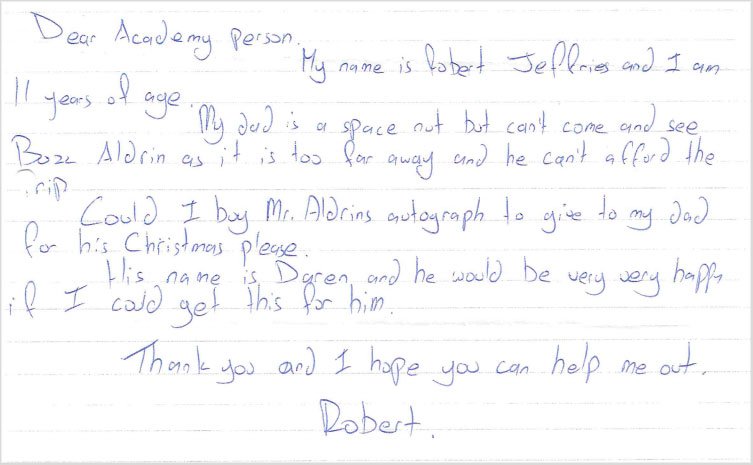 Dear Academy person.
My name is Robert Jeffries and I am
11 years of age.
My dad is a space nut but can't come and see
Buzz Aldrin as it is too far away and he can't afford the
trip
Could I buy Mr. Aldrins autograph to give to my dad
for his Christmas please.
His name is Daren and he would be very very happy
if I could get this for him.
Thank you and I hope you can help me out.
Robert.